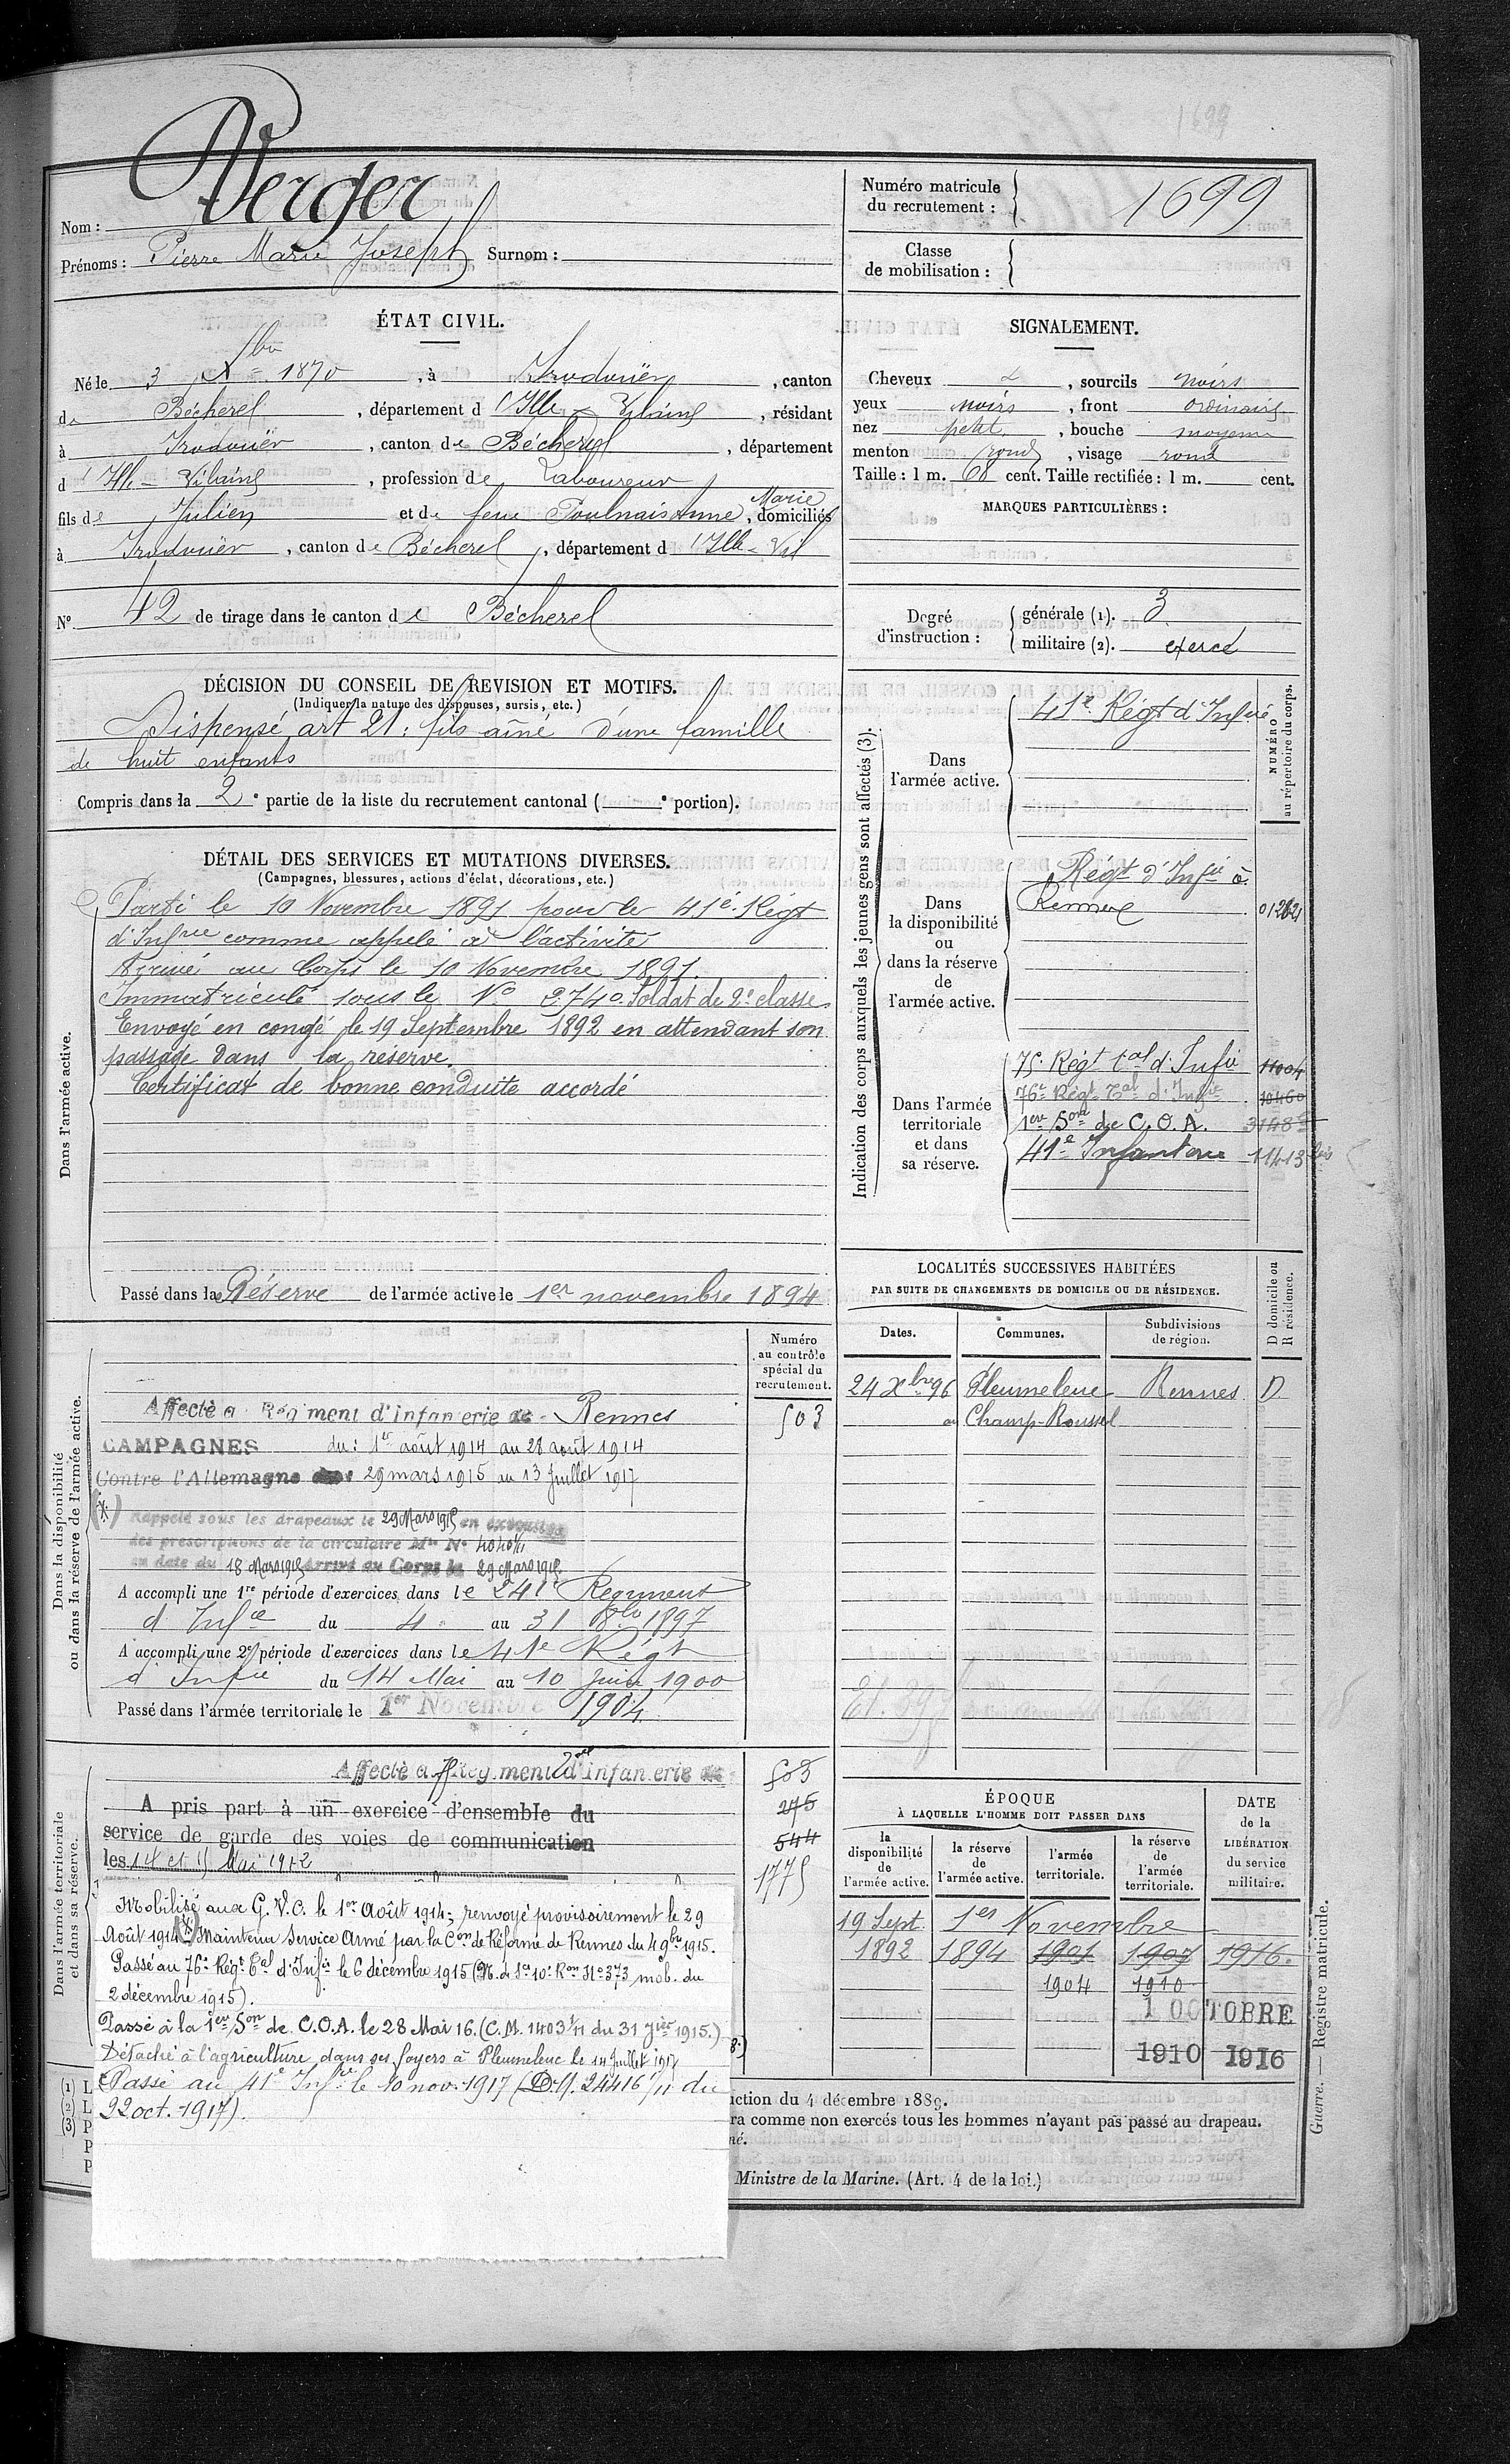 1699
Nom : Verger
Prénoms : Pierre Marie Joseph Surnom :
Numéro matricule
du recrutement : 1699
Classe
de mobilisation :
ÉTAT CIVIL.
Né le 3 Xbre 1870, à Irodouër, canton
de Bécherel, département d'Ille-Vilaine, résidant
à Irodouër, canton de Bécherel, département
d'Ille-Vilaine, profession de Laboureur
fils de Julien et de feue Poulnais Anne Marie, domiciliés
à Irodouër, canton de Bécherel, département d'Ille-Vil
N° 42 de tirage dans le canton de Bécherel
SIGNALEMENT.
Cheveux , sourcils noirs
yeux noirs, front ordinaire
nez petit, bouche moyenne
menton rond, visage rond
Taille : 1 m. 68 cent. Taille rectifiée : 1 m. cent.
MARQUES PARTICULIÈRES :
Degré
d'instruction :
générale (1). 3
militaire (2). exercé
DÉCISION DU CONSEIL DE REVISION ET MOTIFS.
(Indiquer la nature des dispenses, sursis, etc.)
Dispensé art 21 : fils aîné d'une famille
de huit enfants
Compris dans la 2e partie de la liste du recrutement cantonal ( e portion).
DÉTAIL DES SERVICES ET MUTATIONS DIVERSES.
(Campagnes, blessures, actions d'éclat, décorations, etc.)
Dans l'armée active.
Parti le 10 Novembre 1891 pour le 41e Régt
d'Infrie comme appelé à l'activité
Arrivé au Corps le 10 Novembre 1891.
Immatriculé sous le N° 2740. Soldat de 2e classe
Envoyé en congé le 19 Septembre 1892 en attendant son
passage dans la réserve.
Certificat de bonne conduite accordé
Passé dans la Réserve de l'armée active le 1er novembre 1894
Indication des corps auxquels les jeunes gens sont affectés (3).
NUMÉRO
au répertoire du corps.
Dans
l'armée active.
41e Régt d'Infie
Dans
la disponibilité
ou
dans la réserve
de
l'armée active.
Régt d'Infie à
Rennes
Dans l'armée
territoriale
et dans
sa réserve.
75e Régt tal d'Infie 11004
76e Régt Tal d'Infie 10460
1ère Son de C.O.A.
41e Infanterie 11413 bis
LOCALITÉS SUCCESSIVES HABITÉES
PAR SUITE DE CHANGEMENTS DE DOMICILE OU DE RÉSIDENCE.
Dates.
Communes.
Subdivisions
de région.
D domicile ou
R résidence.
24 Xbre 96 Pleumeleuc Rennes D
au Champ-Roussel
Dans la disponibilité
ou dans la réserve de l'armée active.
Numéro
au contrôle
spécial du
recrutement.
Affecté a Régiment d'infanterie de Rennes 503
CAMPAGNES du : 1er août 1914 au 28 août 1914
Contre l'Allemagne 29 mars 1915 au 13 juillet 1917
(*) Rappelé sous les drapeaux le 29 Mars 1915 en exécution
des prescriptions de la circulaire Mlle N°
en date du 18 Mars 1915 Arrivé au Corps le 29 Mars 1915
A accompli une 1re période d'exercices dans le 241e Régiment
d'Infie du 4 au 31 8bre 1897
A accompli une 2e période d'exercices dans le 41e Régt
d'Infie du 14 Mai au 10 Juin 1900
Passé dans l'armée territoriale le 1er Novembre 1904
Dans l'armée territoriale
et dans sa réserve.
Affecté a Régiment d'infanterie 503
A pris part à un exercice d'ensemble du 275
service de garde des voies de communication 544
les 14 et 15 Mai 1912 1775
Mobilisé aux G.V.C. le 1er Août 1914; renvoyé provisoirement le 29
Août 1914 (*) Maintenu Service Armé par la Con de Réforme de Rennes du 4 9bre 1915.
Passé au 76e Régt Tal d'Infie le 6 décembre 1915 (N. de Sce 10e Ron N° 373 mob. du
2 décembre 1915).
Passé à la 1ère Son de C.O.A. le 28 Mai 16. (C.M. 1403 1/11 du 31 1915.)
Détaché à l'agriculture dans ses foyers à Pleumeleuc le 14 Juillet 1917
Passé au 41e Infie le 10 nov. 1917 (D.M. 24416 1/11 du
22 oct. 1917).
ÉPOQUE
À LAQUELLE L'HOMME DOIT PASSER DANS
la
disponibilité
de
l'armée active.
la réserve
de
l'armée active.
l'armée
territoriale.
la réserve
de
l'armée
territoriale.
DATE
de la
LIBÉRATION
du service
militaire.
19 Sept. 1er Novembre
1892 1894 1901 1907 1916.
1904 1910
1 OCTOBRE
1910 1916
(1) L
(2) L
(3) P
P
P
uction du 4 décembre 1889.
ra comme non exercés tous les hommes n'ayant pas passé au drapeau.
né.
Ministre de la Marine. (Art. 4 de la loi.)
Guerre. — Registre matricule.